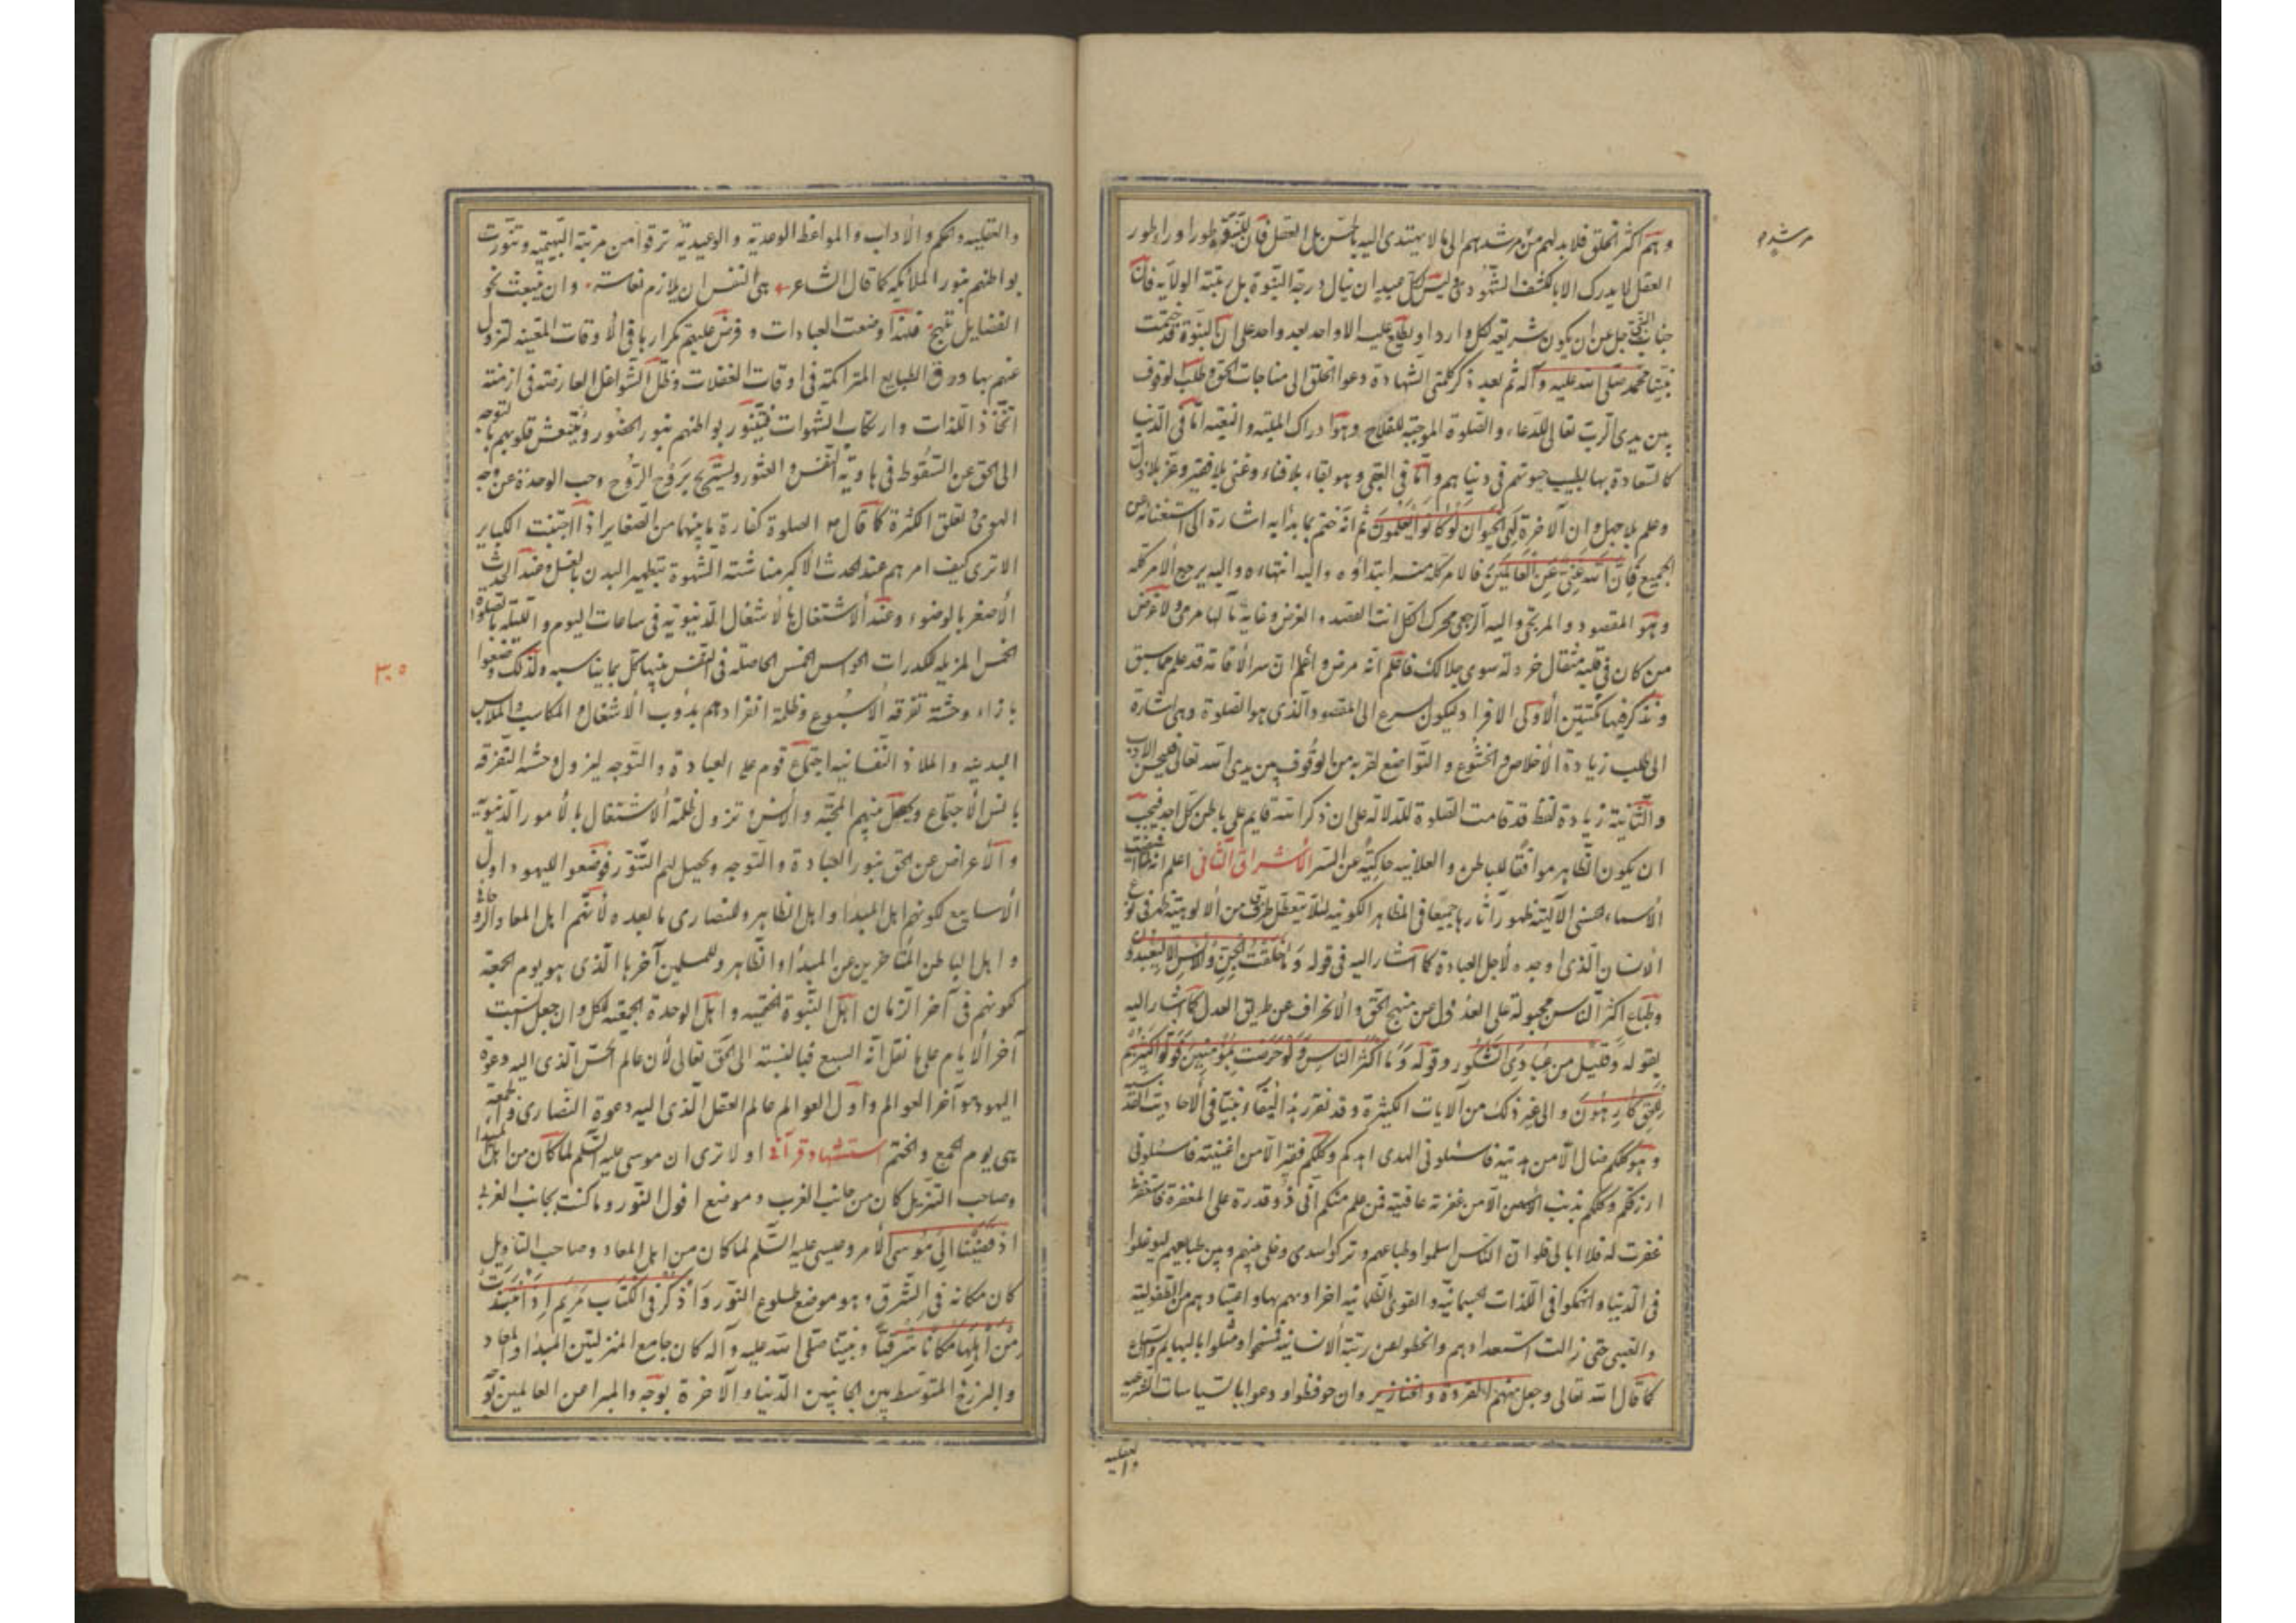 وهم اكثر الخلق فلا بد لهم من مرشد هم الى ما لا يهتدى اليه بالحس بل العقل فان للنبوة طورا وراء طور
مرشد
العقل لا يدرك الا بالكشف الشهودى وليس لكل احد ان ينال درجة النبوة بل رتبة الولاية فان
جناب الحق جل عن ان يكون شريعة لكل وارد او يطلع عليه الا واحد بعد واحد على ان النبوة قد ختمت
نبينا محمد صلى الله عليه وآله ثم بعد ذكر كلمتى الشهادة دعوا الخلق الى مناجات الحق وطلب الوقوف
بين يدى الرب تعالى للدعاء والصلوة الموجبة للفلاح وهو ادراك البقية والبغية اما فى الدنيا
كالسعادة بها لطيب حيوتهم فى دنياهم واما فى العقبى وهو بقاء بلا فناء وغنى بلا فقر وعز بلا ذل
وعلم بلا جهل وان الآخرة لَهِىَ الحَيَوانُ لَوْ كانُوا يَعْلَمُونَ ثم انه ختم بما بدأ به اشارة الى استغنائه عن
الجميع فَإِنَّ اللهَ غَنِىٌّ عَنِ الْعالَمِينَ فالامر كله منه ابتداؤه واليه انتهاءه واليه يرجع الأمر كله
وهو المقصود والمرتجى واليه الرجعى محرك الكل انت القصد والغرض وغاية ما لها مرمى ولا غرض
من كان فى قلبه مثقال خردلة سوى جلالك فاعلم انه مرض واعلم ان سر الاقامة قد علم مما سبق
ونذكر فيها نكتتين الاولى الافراد ليكون اسرع الى المقصود الذى هو الصلوة وهى اشارة
الى طلب زيادة الاخلاص والخشوع والتواضع لقربه من الوقوف بين يدى الله تعالى فيحسن الادب
والثانية زيادة لفظ قد قامت الصلوة للدلالة على ان ذكر الله قايم على باطن كل احد فيجب
ان يكون الظاهر موافقا للباطن والعلانيه حاكية عن السر الاشراق الثانى اعلم انه لما اقتضت
الأسماء الحسنى الالهية ظهور آثارها جميعا فى المظاهر الكونية لئلا يتعطل طرف من الالوهية ظهر فى نوع
الانسان الذى اوجده لأجل العبادة كما اشار اليه فى قوله وَما خَلَقْتُ الْجِنَّ وَالْاِنْسَ اِلّا لِيَعْبُدُونِ
وطباع اكثر الناس مجبولة على العدول عن منهج الحق والانحراف عن طريق العدل كما اشار اليه
بقوله وَقَلِيلٌ مِنْ عِبادِىَ الشَّكُورُ وقوله وَما اَكْثَرُ النّاسِ وَلَوْ حَرَصْتَ بِمُؤْمِنِينَ وقوله اَكْثَرُهُمْ
لِلْحَقِّ كارِهُونَ والى غير ذلك من الآيات الكثيرة وقد تقرر هذا ايضا نبينا فى الأحاديث القدسيه
وهو كلكم ضال الا من هديته فاسئلونى الهدى اهدكم وكلكم فقير الا من اغنيته فاسئلونى
ارزقكم وكلكم مذنب الا من عافيته فمن علم منكم انى ذو قدرة على المغفرة فاستغفرنى
غفرت له فلا ابالى فلو ان الناس اسلموا وطباعهم وتركوا سدى وخلى بينهم وبين طبايعهم ليوغلوا
فى الدنيا وانهمكوا فى اللذات الجسمانية والقوى الظلمانيه لضراوتهم بها واعتيادهم من الطفولية
والصبى حتى زالت استعدادهم وانحطوا عن رتبة الانسانية فمسخوا ومثلوا بالبهايم والسباع
كما قال الله تعالى وجعل منهم القردة والخنازير وان حوفظوا ودعوا بالسياسات الشرعيه
والعقليه
والعقليه والحكم والآداب والمواعظ الوعدية والوعيدية ترقوا من مرتبة البهيمية وتنورت
بواطنهم بنور الملائكه كما قال الشاعر هى النفس ان يلازم خساسة وان تنبعث نحو
الفضايل تلهج فلهذا وضعت العبادات وفرض عليهم تكرارها فى الاوقات المعينه لتزول
عنهم بها درن الطبايع المتراكمة فى اوقات الغفلات وظلل الشواغل العارضة فى ازمنة
اتخاذ اللذات وارتكاب الشهوات فيتنور بواطنهم بنور الحضور وينتعش قلوبهم بالتوجه
الى الحق عن السقوط فى هاوية النفس والعثور ويستريح برَوح الرُّوح وحب الوحدة عن وجه
الهوى وتعلق الكثرة كما قال ص الصلوة كفارة ما بينهما من الصغاير اذا اجتنبت الكباير
الا ترى كيف امرهم عند الحدث الأكبر منا شتة الشهوة بتطهير البدن بالغسل وعند الحدث
الأصغر بالوضوء وعند الاشتغال بالاشغال الدنيوية فى ساعات اليوم والليلة بالصلوة
الخمس المزيله لكدرات الحواس الخمس الحاصله فى النفس منها كل بما يناسبه ولذلك وضعوا
بازاء وحشة تفرقة الاسبوع وظلمة انفرادهم بدؤب الأشغال والمكاسب والملابس
البدنيه والملاذ النفسانيه اجتماع قوم على العبادة والتوجه ليزول وحشة التفرقه
بانس الاجتماع ويحصل بينهم المحبة والأنس وتزول ظلمة الاشتغال بالأمور الدنيوية
والأعراض عن الحق بنور العبادة والتوجه ويحصل لهم التنور فوضعوا لليهود اول
الأسابيع لكونهم اهل المبدأ واهل الظاهر وللنصارى ما بعده لأنهم اهل المعاد الروحانى
واهل الباطن المتأخرين عن المبدأ والظاهر وللمسلمين آخرها الذى هو يوم الجمعة
كونهم فى آخر الزمان اهل النبوة الختمية واهل الوحدة الجمعية للكل وان جعل السبت
آخر الايام على ما نقل انه السبع فبالنسبة الى الحق تعالى لأن عالم الحس الذى اليه دعوة
اليهود هو آخر العوالم واول العوالم عالم العقل الذى اليه دعوة النصارى والجمعة
هى يوم الجمع والختم استشهاد قرآنى او لا ترى ان موسى عليه السلم لما كان من اهل المبدأ
وصاحب التنزيل كان من جانب الغرب وموضع افول النور وما كنت بجانب الغربى
اذ قَضَيْنا اِلى مُوسَى الأمر وعيسى عليه السلم لما كان من اهل المعاد وصاحب التاويل
كان مكانه فى الشرق وهو موضع طلوع النور وَاذْكُرْ فِى الْكِتابِ مَرْيَمَ اِذِ انْتَبَذَتْ
مِنْ اَهْلِها مَكانًا شَرْقِيًّا ونبينا صلى الله عليه وآله كان جامع المنزلتين المبدأ والمعاد
والبرزخ المتوسط بين الجانبين الدنيا والآخرة بوجه والمبرا من العالمين
٣٠٥